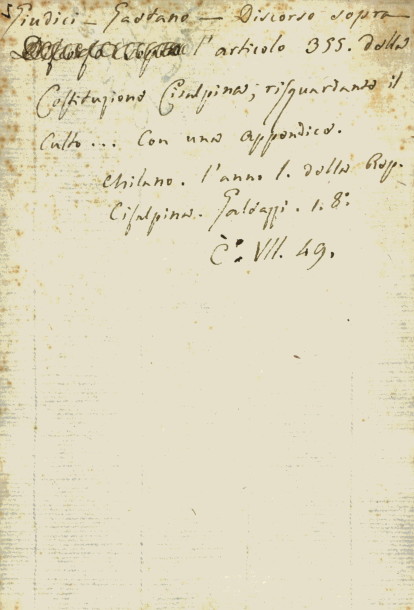 Giudici - Gaetano - Discorso sopra
l'articolo 355. della
Costituzione Cisalpina; risguardante il
Culto... Con una appendice.
Milano. l'anno I. della Rep.
Cisalpina. Galeazzi. 1. 8.°
C. VII. 49.